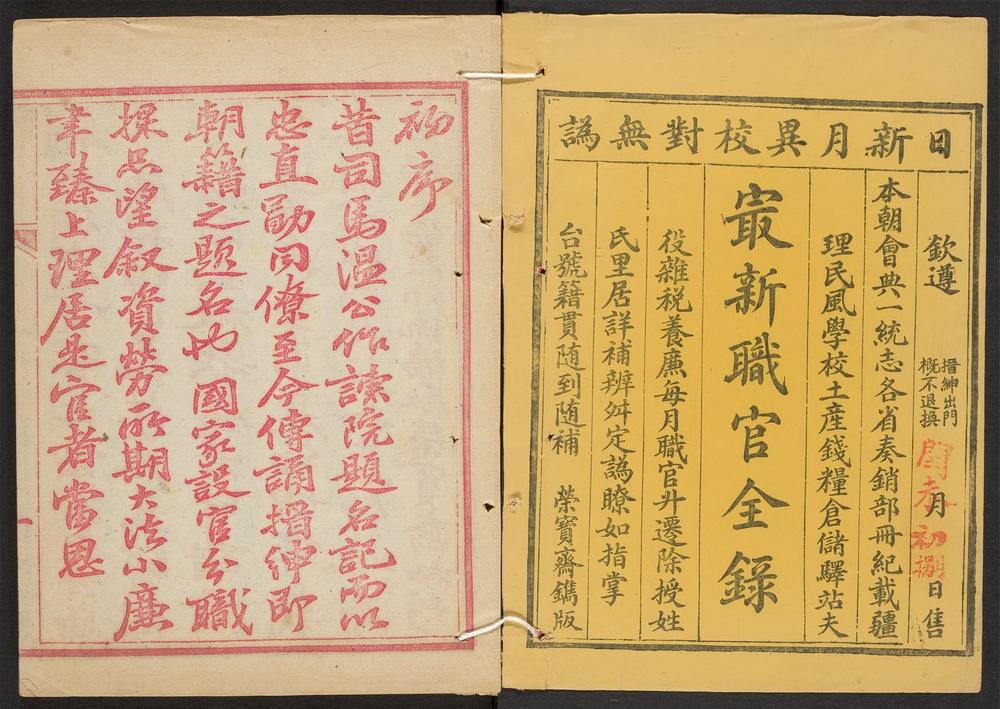 日新月異校對無譌
欽遵 搢紳出門概不退換 閏叁月初捌日售
本朝會典一統志各省奏銷部冊紀載疆
理民風學校土產錢糧倉儲驛站夫
㝡新職官全錄
役雜稅養廉每月職官升遷除授姓
氏里居詳補辨舛定譌瞭如指掌
台號籍貫随到随補 榮寶齋鐫版
初序
昔司馬温公作諫院題名記而以
忠直勗同僚至今傳誦搢紳即
朝籍之題名也 國家設官分職
採品望叙資勞所期大法小廉
聿臻上理居是官者當思